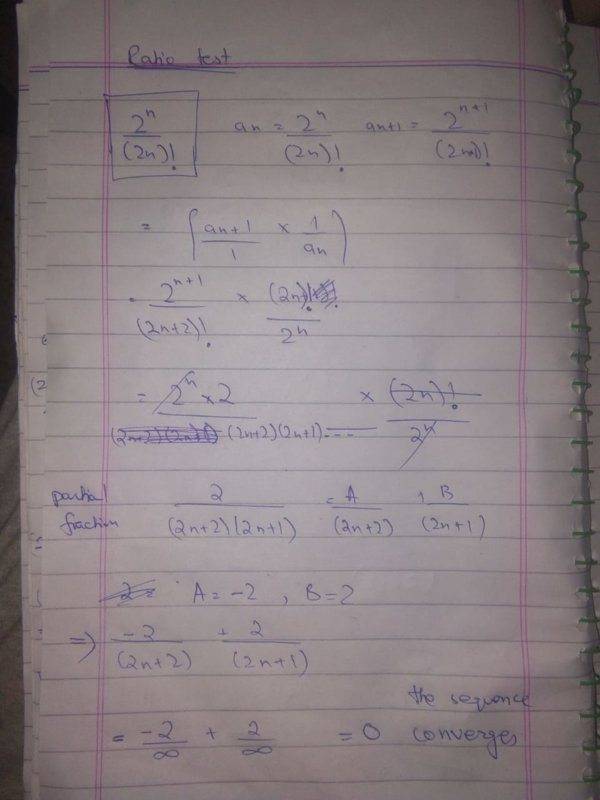 Ratio test
2^n / (2n)!   an = 2^n / (2n)!   an+1 = 2^(n+1) / !
= | an+1 / 1 × 1 / an |
= 2^(n+1) / (2n+2)! × (2n)! / 2^n
= 2^n × 2 / (2n+2)(2n+1)---- × (2n)! / 2^n
partial fraction   2 / (2n+2)(2n+1) = A / (2n+2) + B / (2n+1)
2 =   A = -2 , B = 2
⇒ -2 / (2n+2) + 2 / (2n+1)
the sequence
= -2 / ∞ + 2 / ∞ = 0 converges